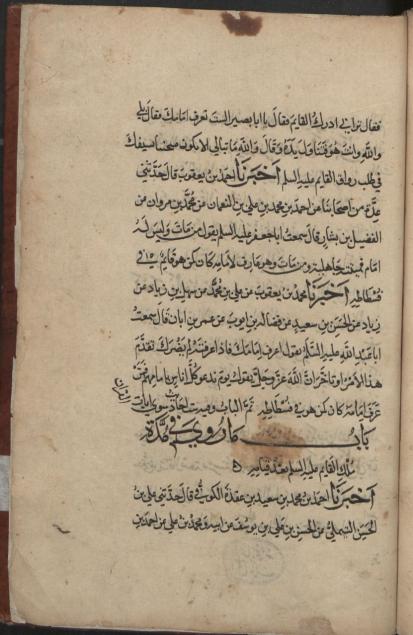 فقال تراني ادرك القايم فقال يا ابا بصير الست تعرف امامك فقال بلى
والله وانت هو فتناول يده وقال والله ما تبالي الا تكون محتبيا بسيفك
في ظل رواق القايم عليه السلم اخبرنا محمد بن يعقوب قال حدثني
عدة من اصحابنا عن احمد بن محمد عن علي بن النعمان عن محمد بن مروان عن
الفضيل بن يسار قال سمعت ابا جعفر عليه السلم يقول من مات وليس له
امام فميتته جاهلية ومن مات وهو عارف لامامه كان كمن هو قايم في
فسطاطه اخبرنا محمد بن يعقوب عن علي بن محمد عن سهل بن زياد عن
الحسن بن سعيد عن فضالة بن ايوب عن عمر بن ابان قال سمعت
ابا عبد الله عليه السلم يقول اعرف امامك فاذا عرفته لم يضرك تقدم
هذا الامر او تاخر ان الله عز وجل يقول يوم ندعو كل اناس بامامهم فمن
عرف امامه كان كمن هو في فسطاطه تم الباب
باب ما روي في مدة
ملك القايم عليه السلم بعد قيامه
اخبرنا احمد بن محمد بن سعيد بن عقدة الكوفي قال حدثني علي بن
الحسن التيملي عن الحسن بن علي بن يوسف عن ابيه ومحمد بن علي عن احمد بن